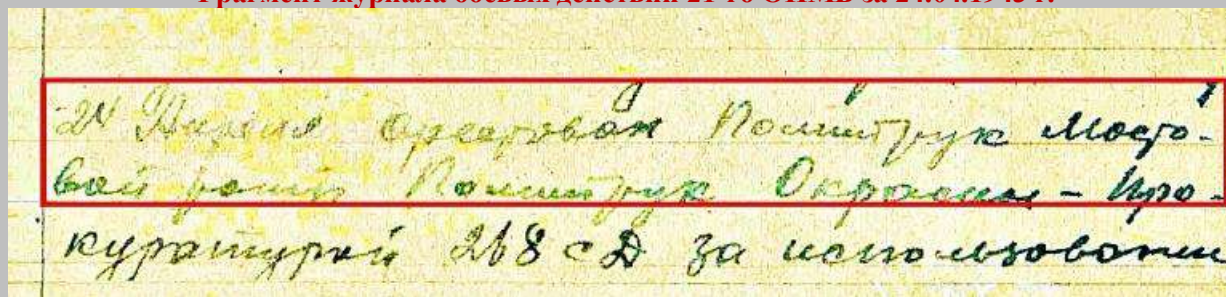 Фрагмент журнала боевых действий 21-го ОПМБ за 24.04.1943 г.
24 Апреля арестован Политрук Мосто-
вой роты Политрук - Про-
куратурой 268 сд за использование